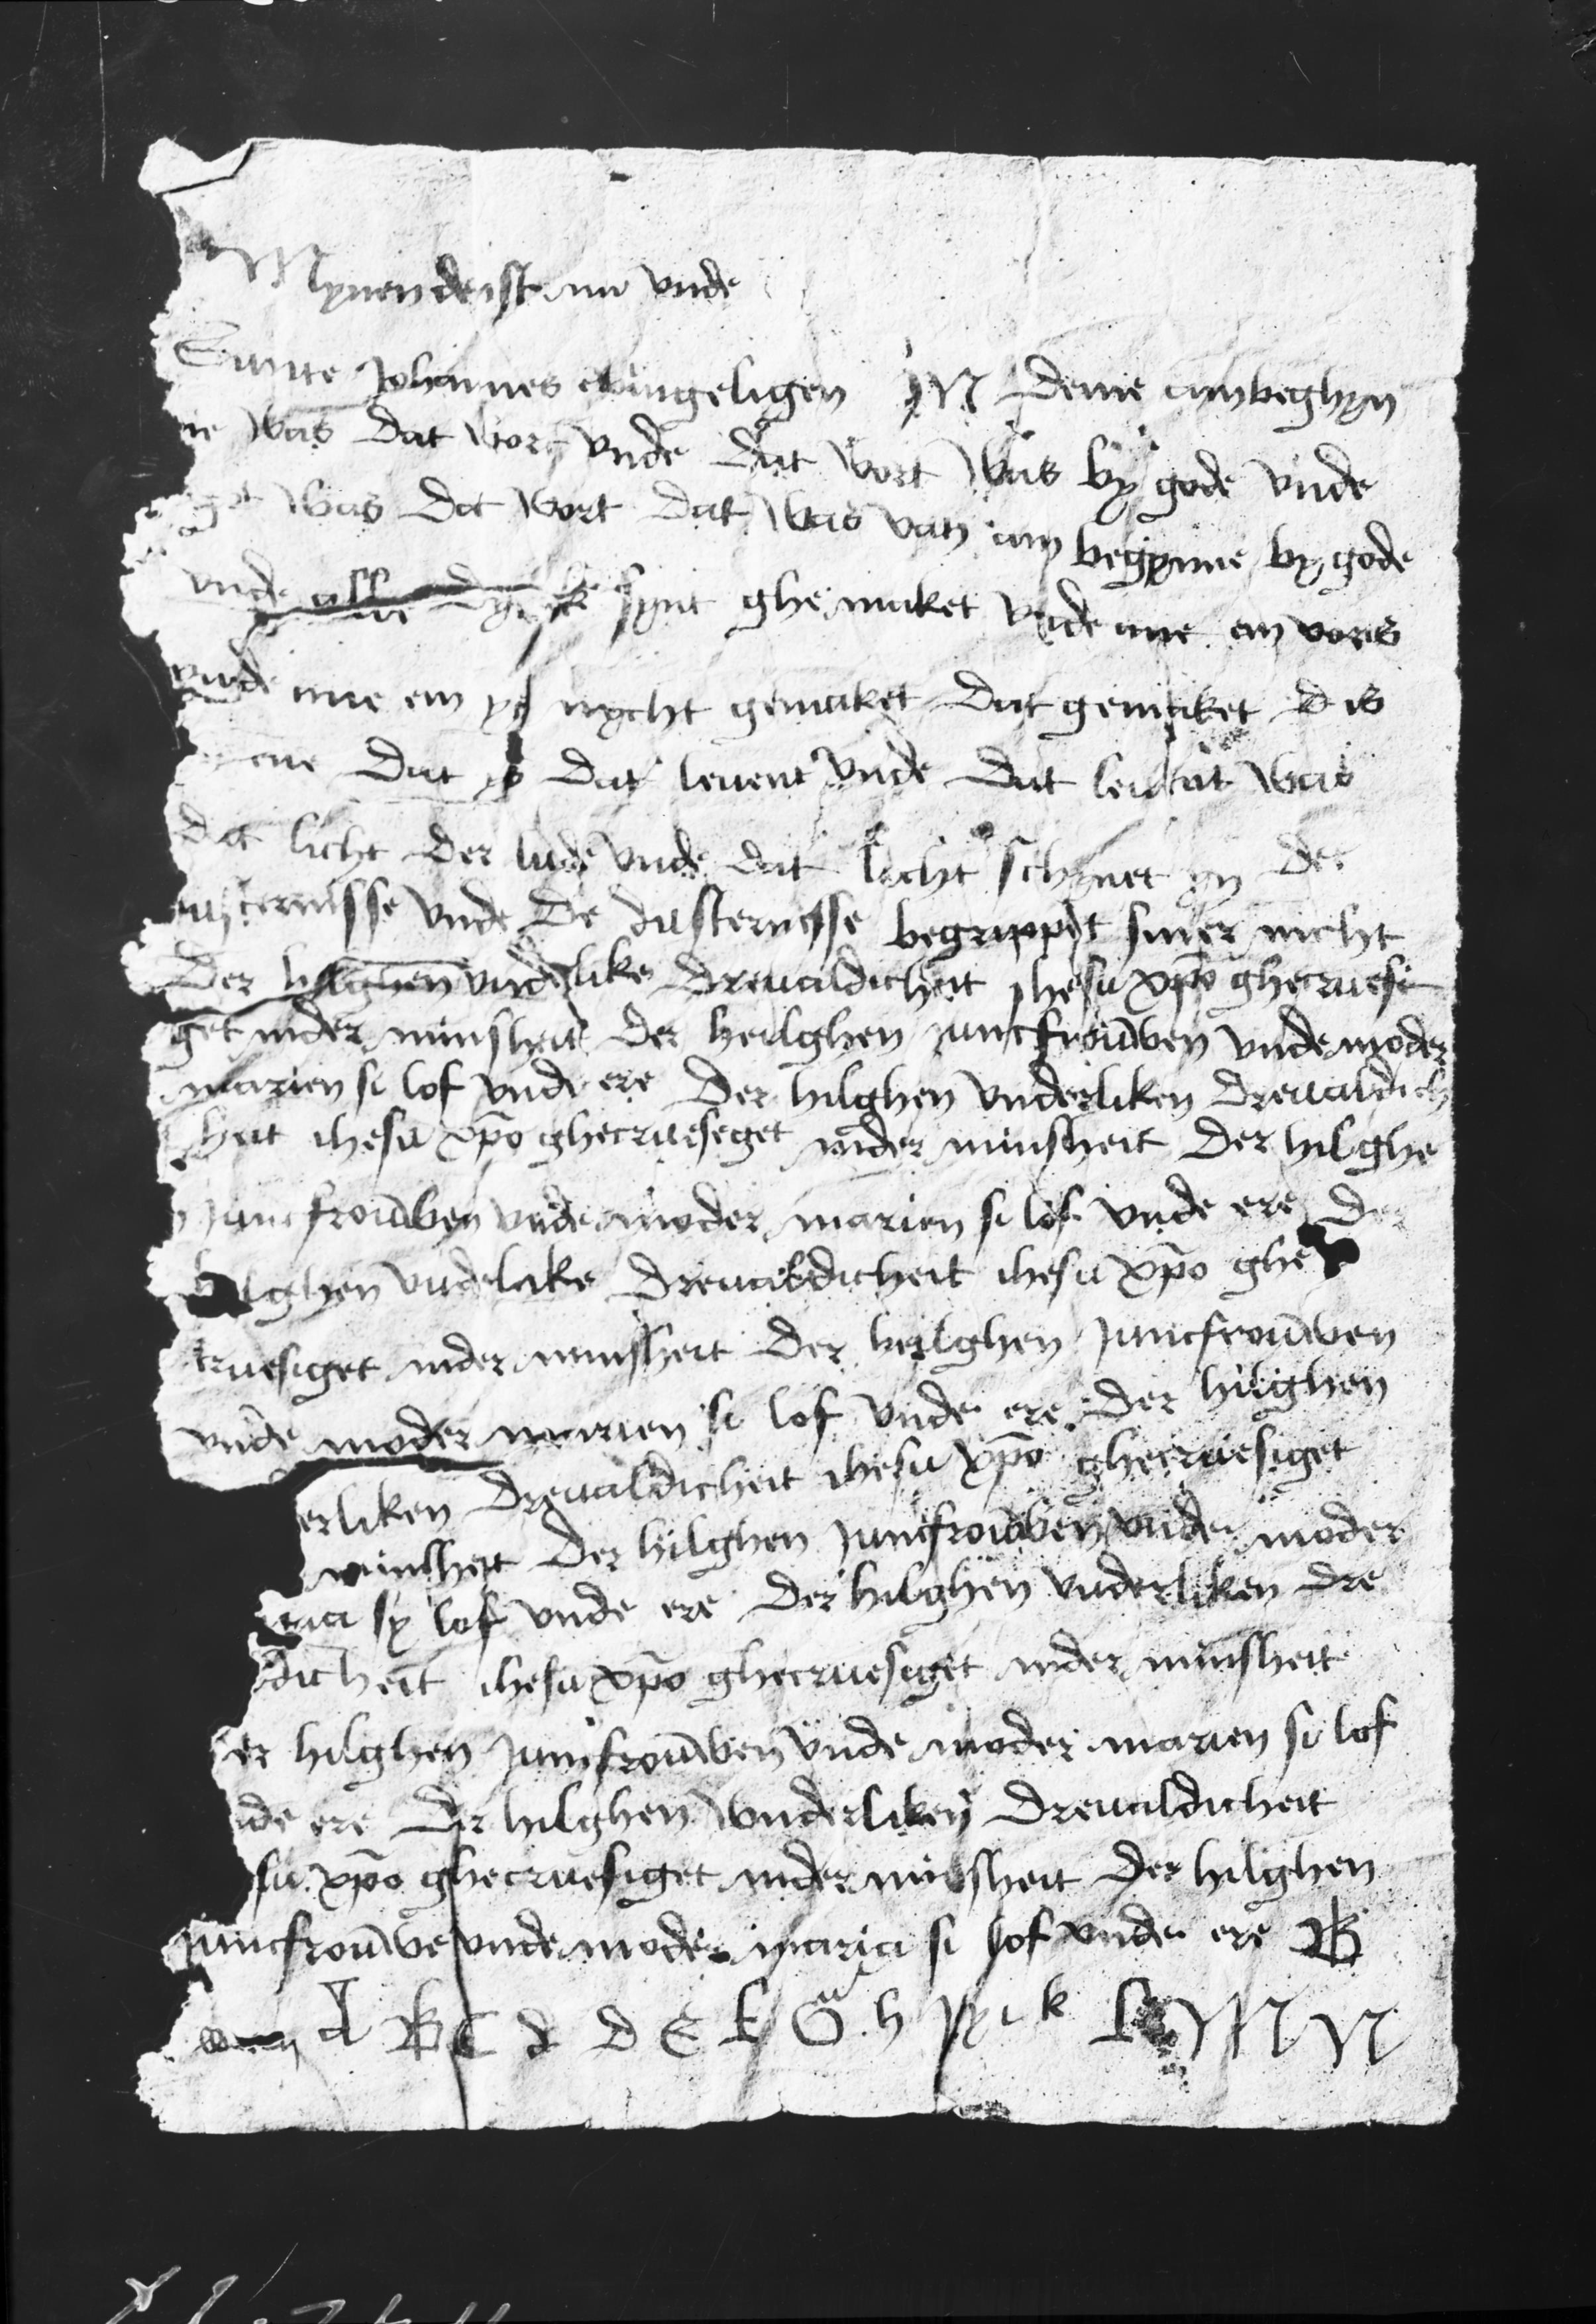 Mynen denst nu vnde
Sunte Johannes ewangeligen IN deme anbeghyn
ne was dat wort vnde dat wort was by gode vnde
got was dat wort dat was van an begynne by gode
vnde alle dyncke synt ghe maket vnde ane en vors
vnde ane em ys nycht gemaket dat gemaket d is
eme dat ys dat leuent vnde dat leuent was
dat licht der lude vnde dat licht schynet yn der
dusternisse vnde de dusternisse begrippet siner nicht
Der hilghen vnderlike dreualdicheit ihesu xpo ghecruesi
get inder minsheit der heilghen juncfrouwen vnde moder
marien si lof vnde ere Der hilghen vnderliken dreualdich
heit ihesu xpo ghecrueseget inder minsheit der hilghe
n juncfrouwen vnde moder marien si lof vnde ere Der
hilghen vndelike dreualdicheit ihesu xpo ghe
cruesiget inder minsheit der heilghen juncfrouwen
vnde moder marien si lof vnde ere Der hilighen
erliken dreualdicheit ihesu xpo ghecruesiget
minsheit der hilghen juncfrouwen vnde moder
ria sy lof vnde ere Der hilghen vnderliken dre
dicheit ihesu xpo ghecruesiget inder minsheit
er hilghen juncfrouwen vnde moder marien si lof
de ere Der hilghen vnderliken dreualdicheit
su xpo ghecruesiget inder minsheit der hilghen
juncfrouwe vnde moder maria si lof vnde ere B
A B C d D E F G h k L M N